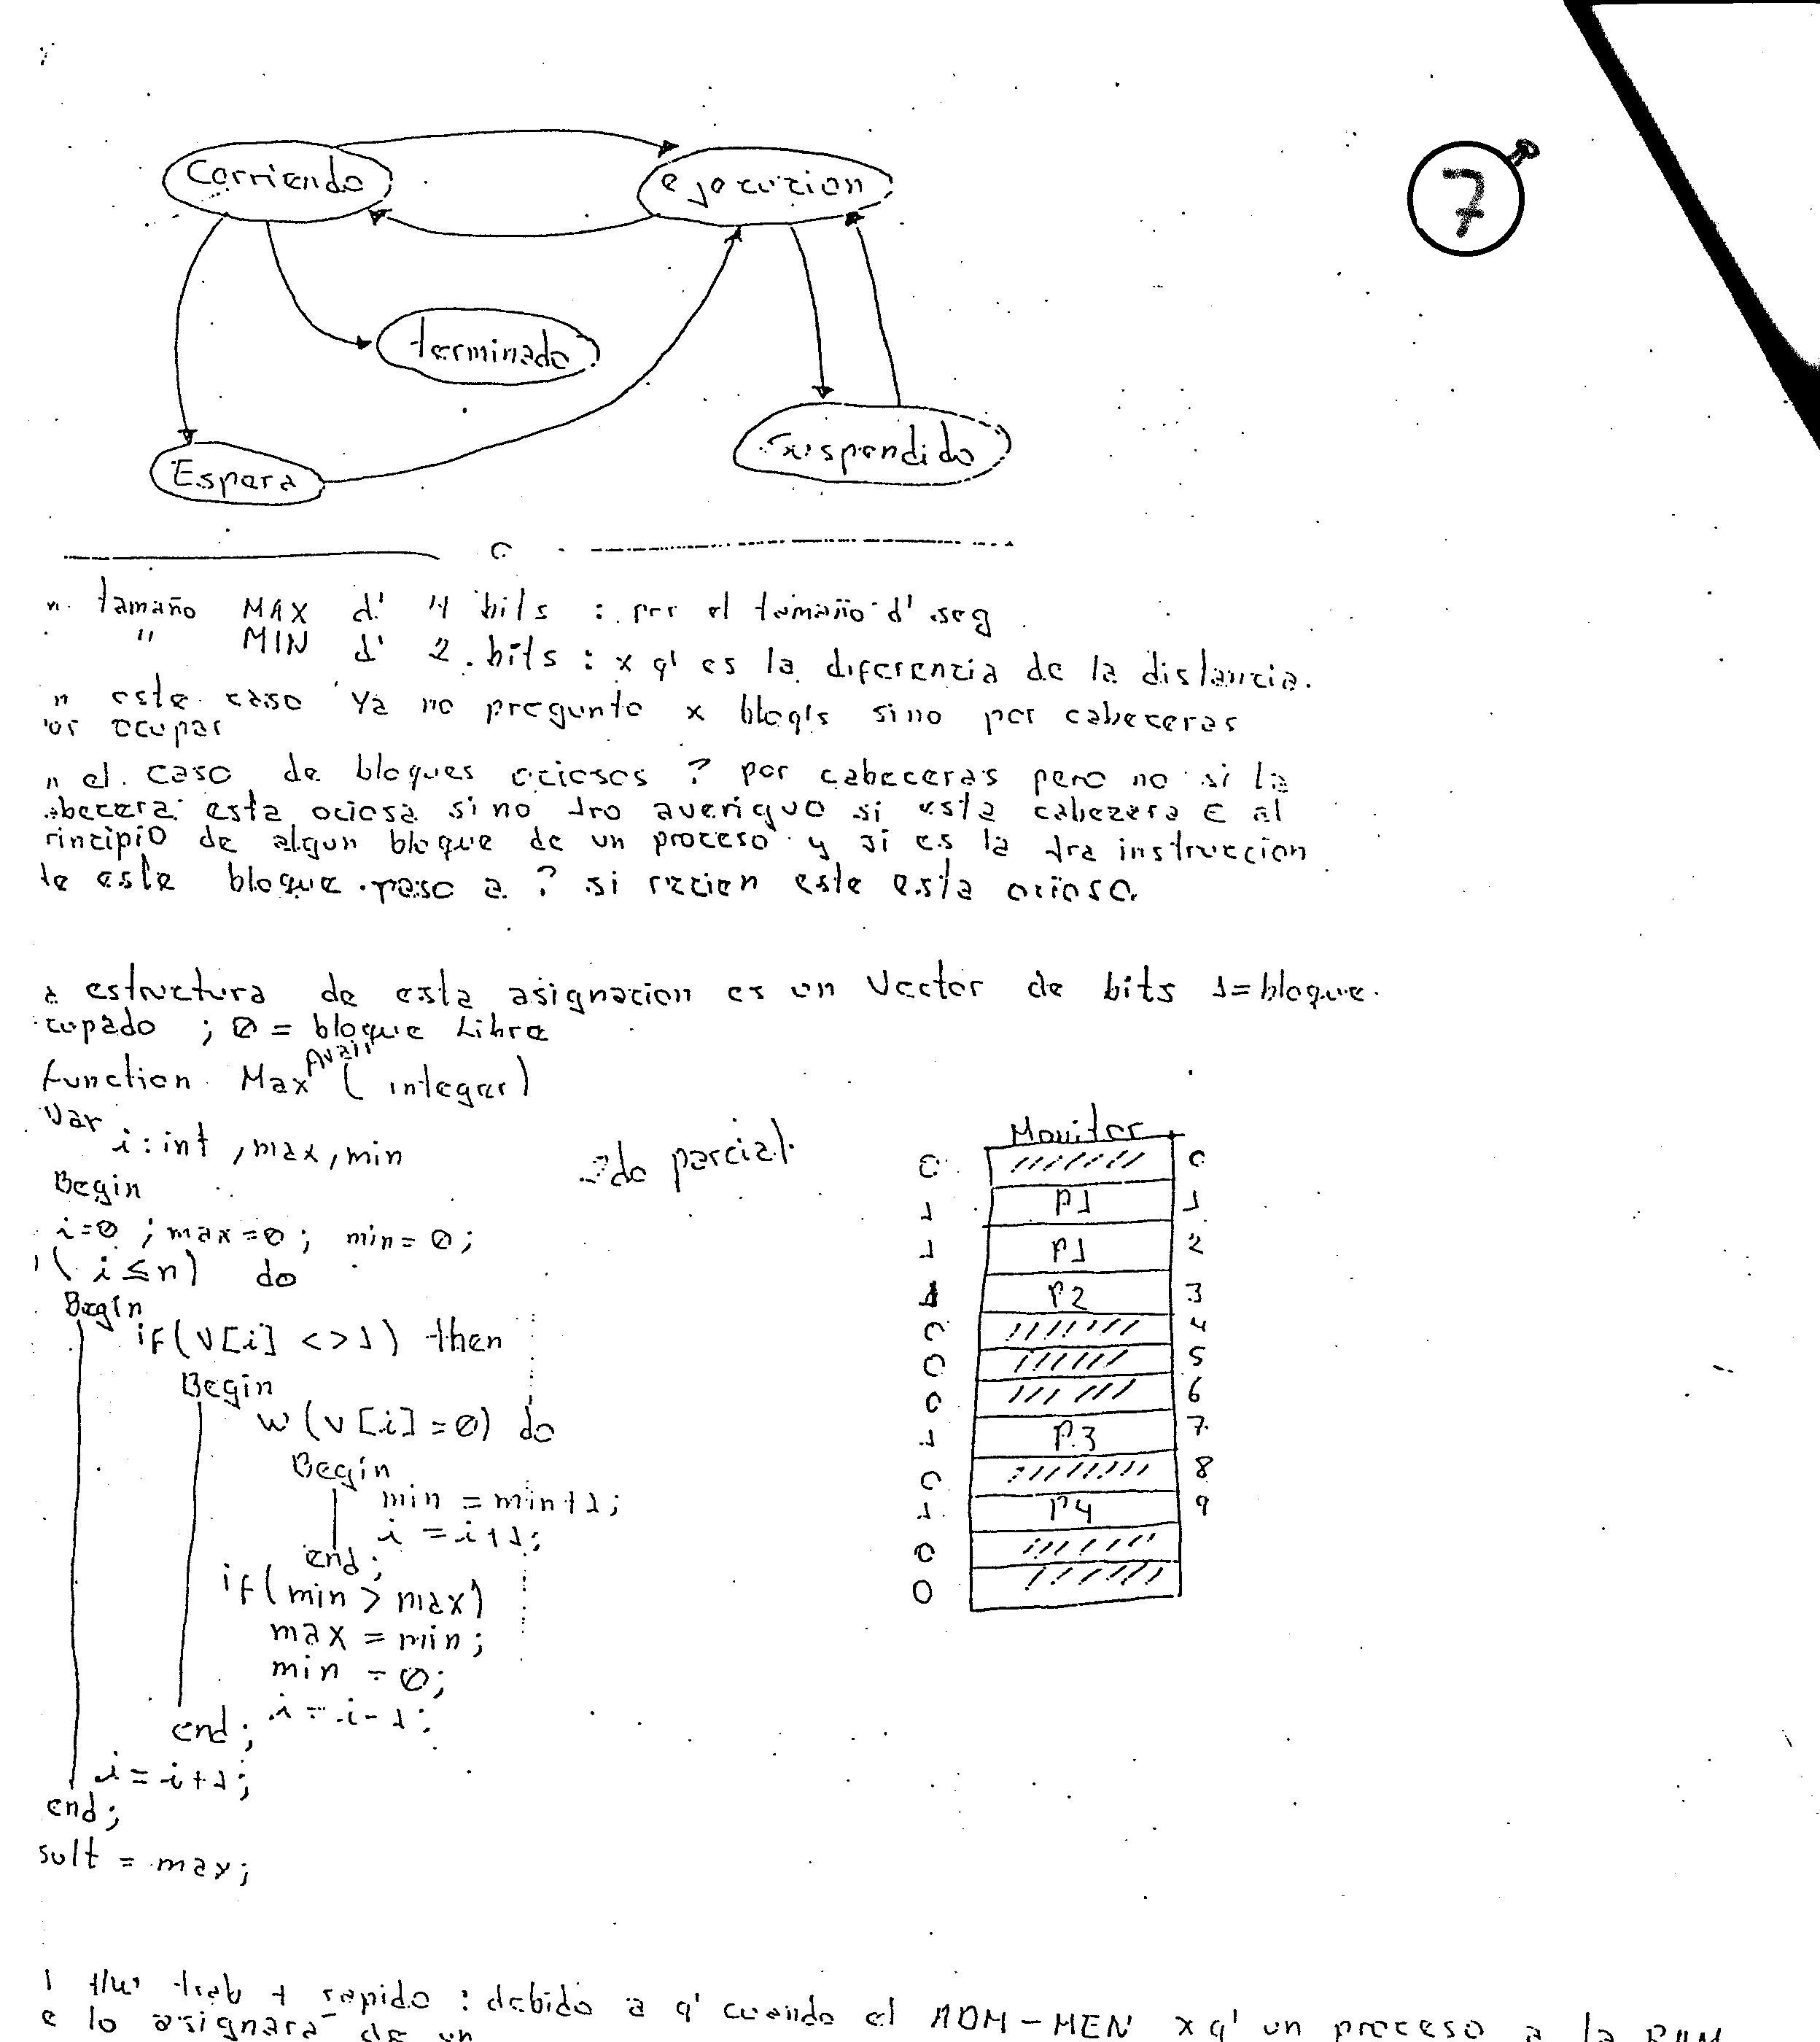 7
Corriendo
ejecucion
terminado
Espera
suspendido
tamaño MAX d' 4 bits : por el tamaño d' seg
" MIN d' 2 bits : x q' es la diferencia de la distancia.
n este caso ya no pregunto x bloq's sino por cabeceras
or ocupar
n el caso de bloques ociosos ? por cabeceras pero no si la
abecera esta ociosa sino 1ro averiguo si esta cabezera ∈ al
rincipio de algun bloque de un proceso y si es la 1ra instruccion
de este bloque paso a ? si recien este esta ocioso.
a estructura de esta asignacion es un Vector de bits 1=bloque
cupado ; 0 = bloque Libre
function Max Avail ( integer)
Var
i : int , max, min
2do parcial
Begin
i=0 ; max=0; min=0;
( i ≤ n) do
Begin
if(v[i] <>1) then
Begin
w (v[i]=0) do
Begin
min = min+1;
i = i+1;
end;
if(min > max)
max = min;
min = 0;
i = i-1;
end;
i = i+1;
end;
sult = max;
Monitor
0 0
1 P1 1
1 P1 2
1 P2 3
0 4
0 5
0 6
1 P3 7
0 8
1 P4 9
0
0
trab + rapido : debido a q' cuando el ADM-MEN x q' un proceso a la RAM
e lo asignara de un